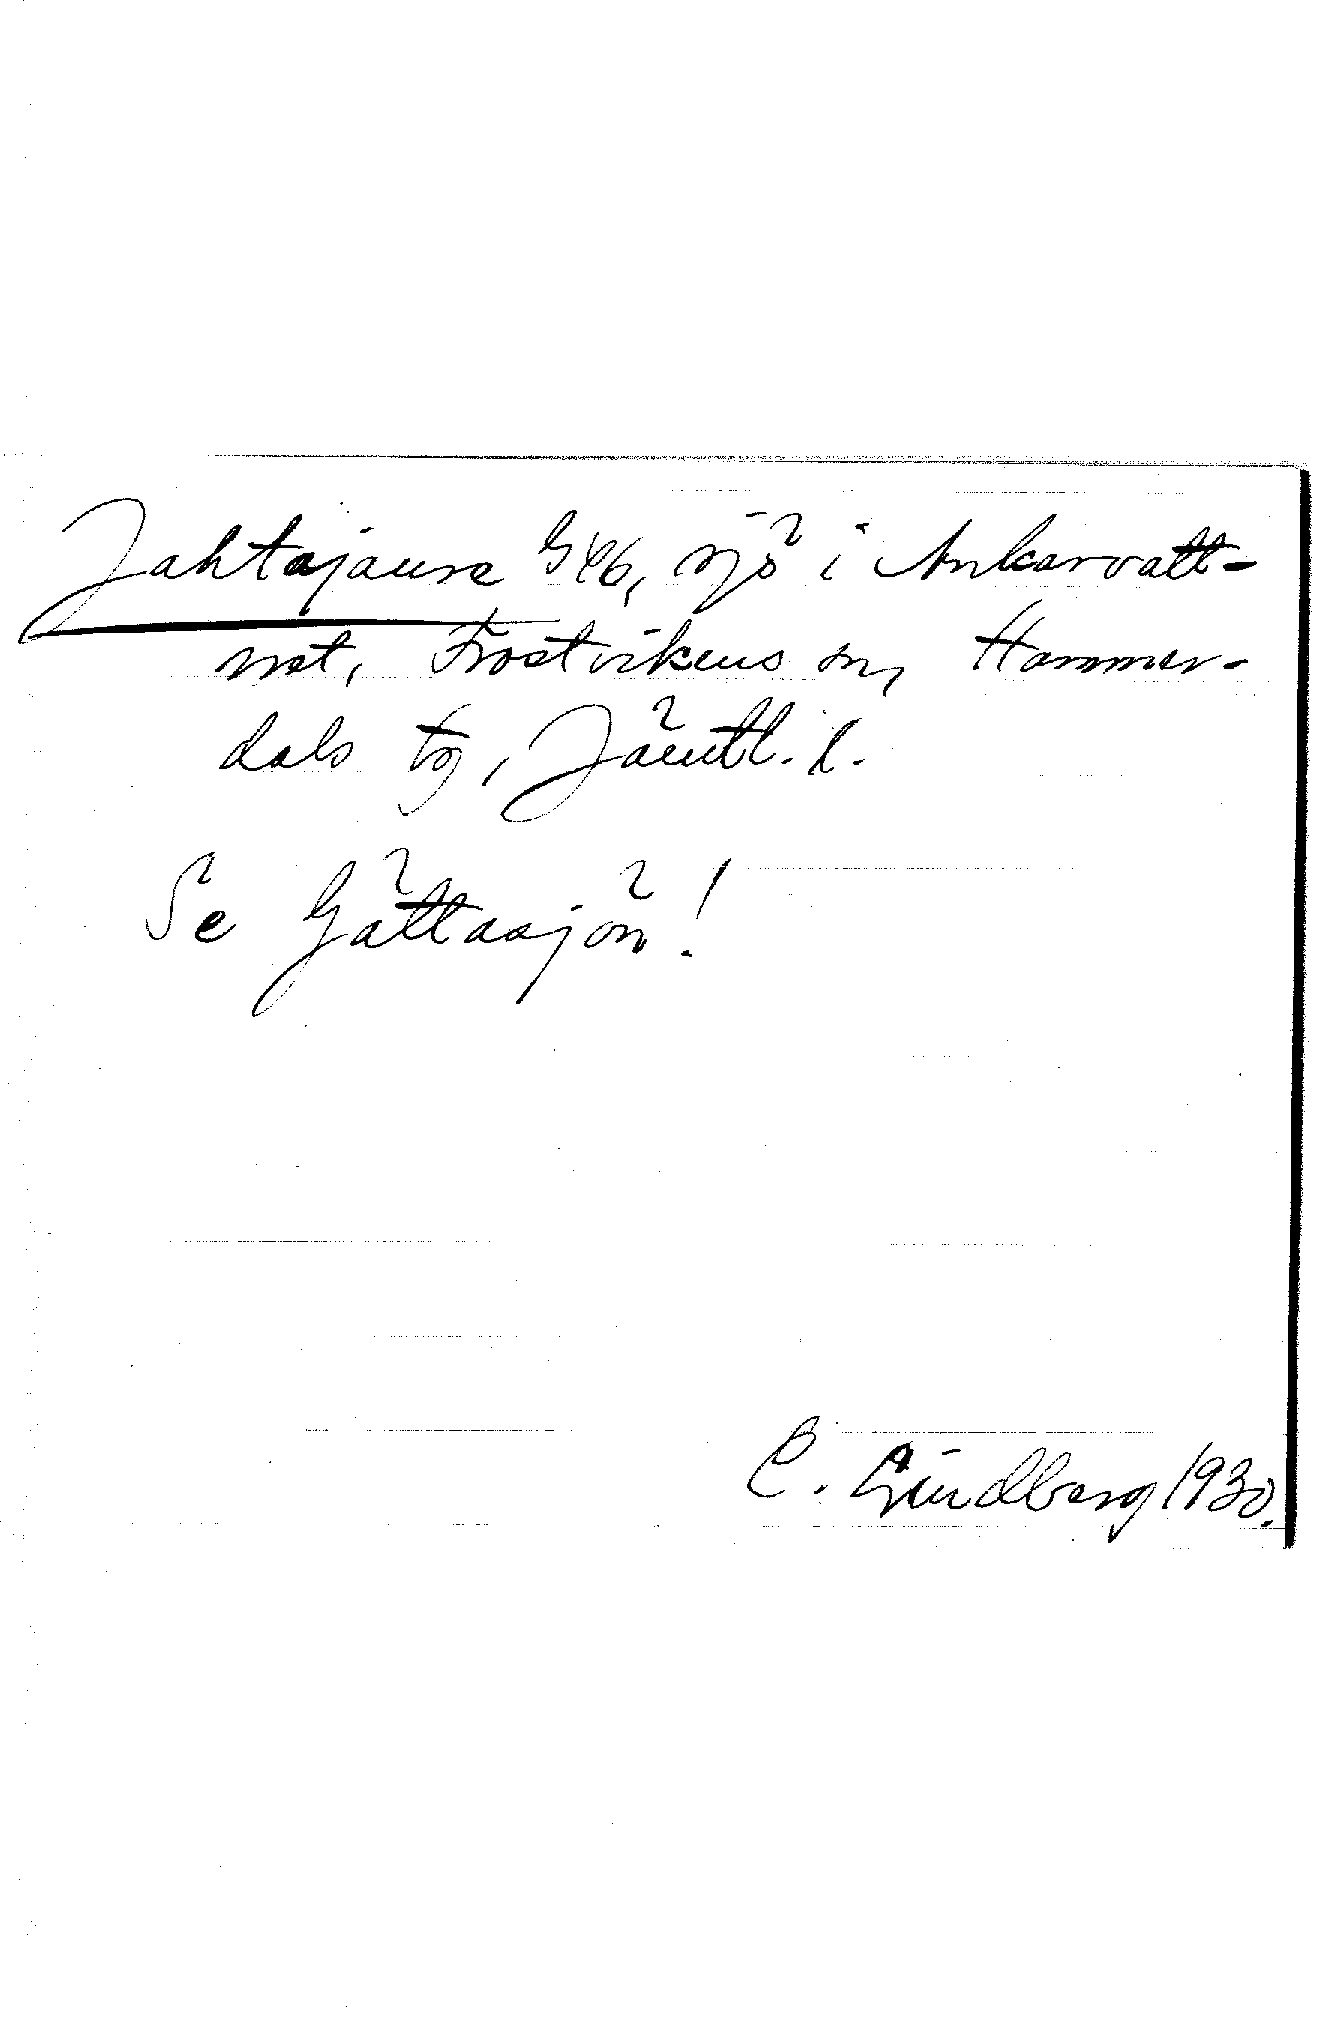 Jahtajaure G46, sjö i Ankarvatt-
net, Frostvikens sn, Hammer-
dals tg, Jämtl. l.
Se Gåttasjön!
C. Lindberg 1930.